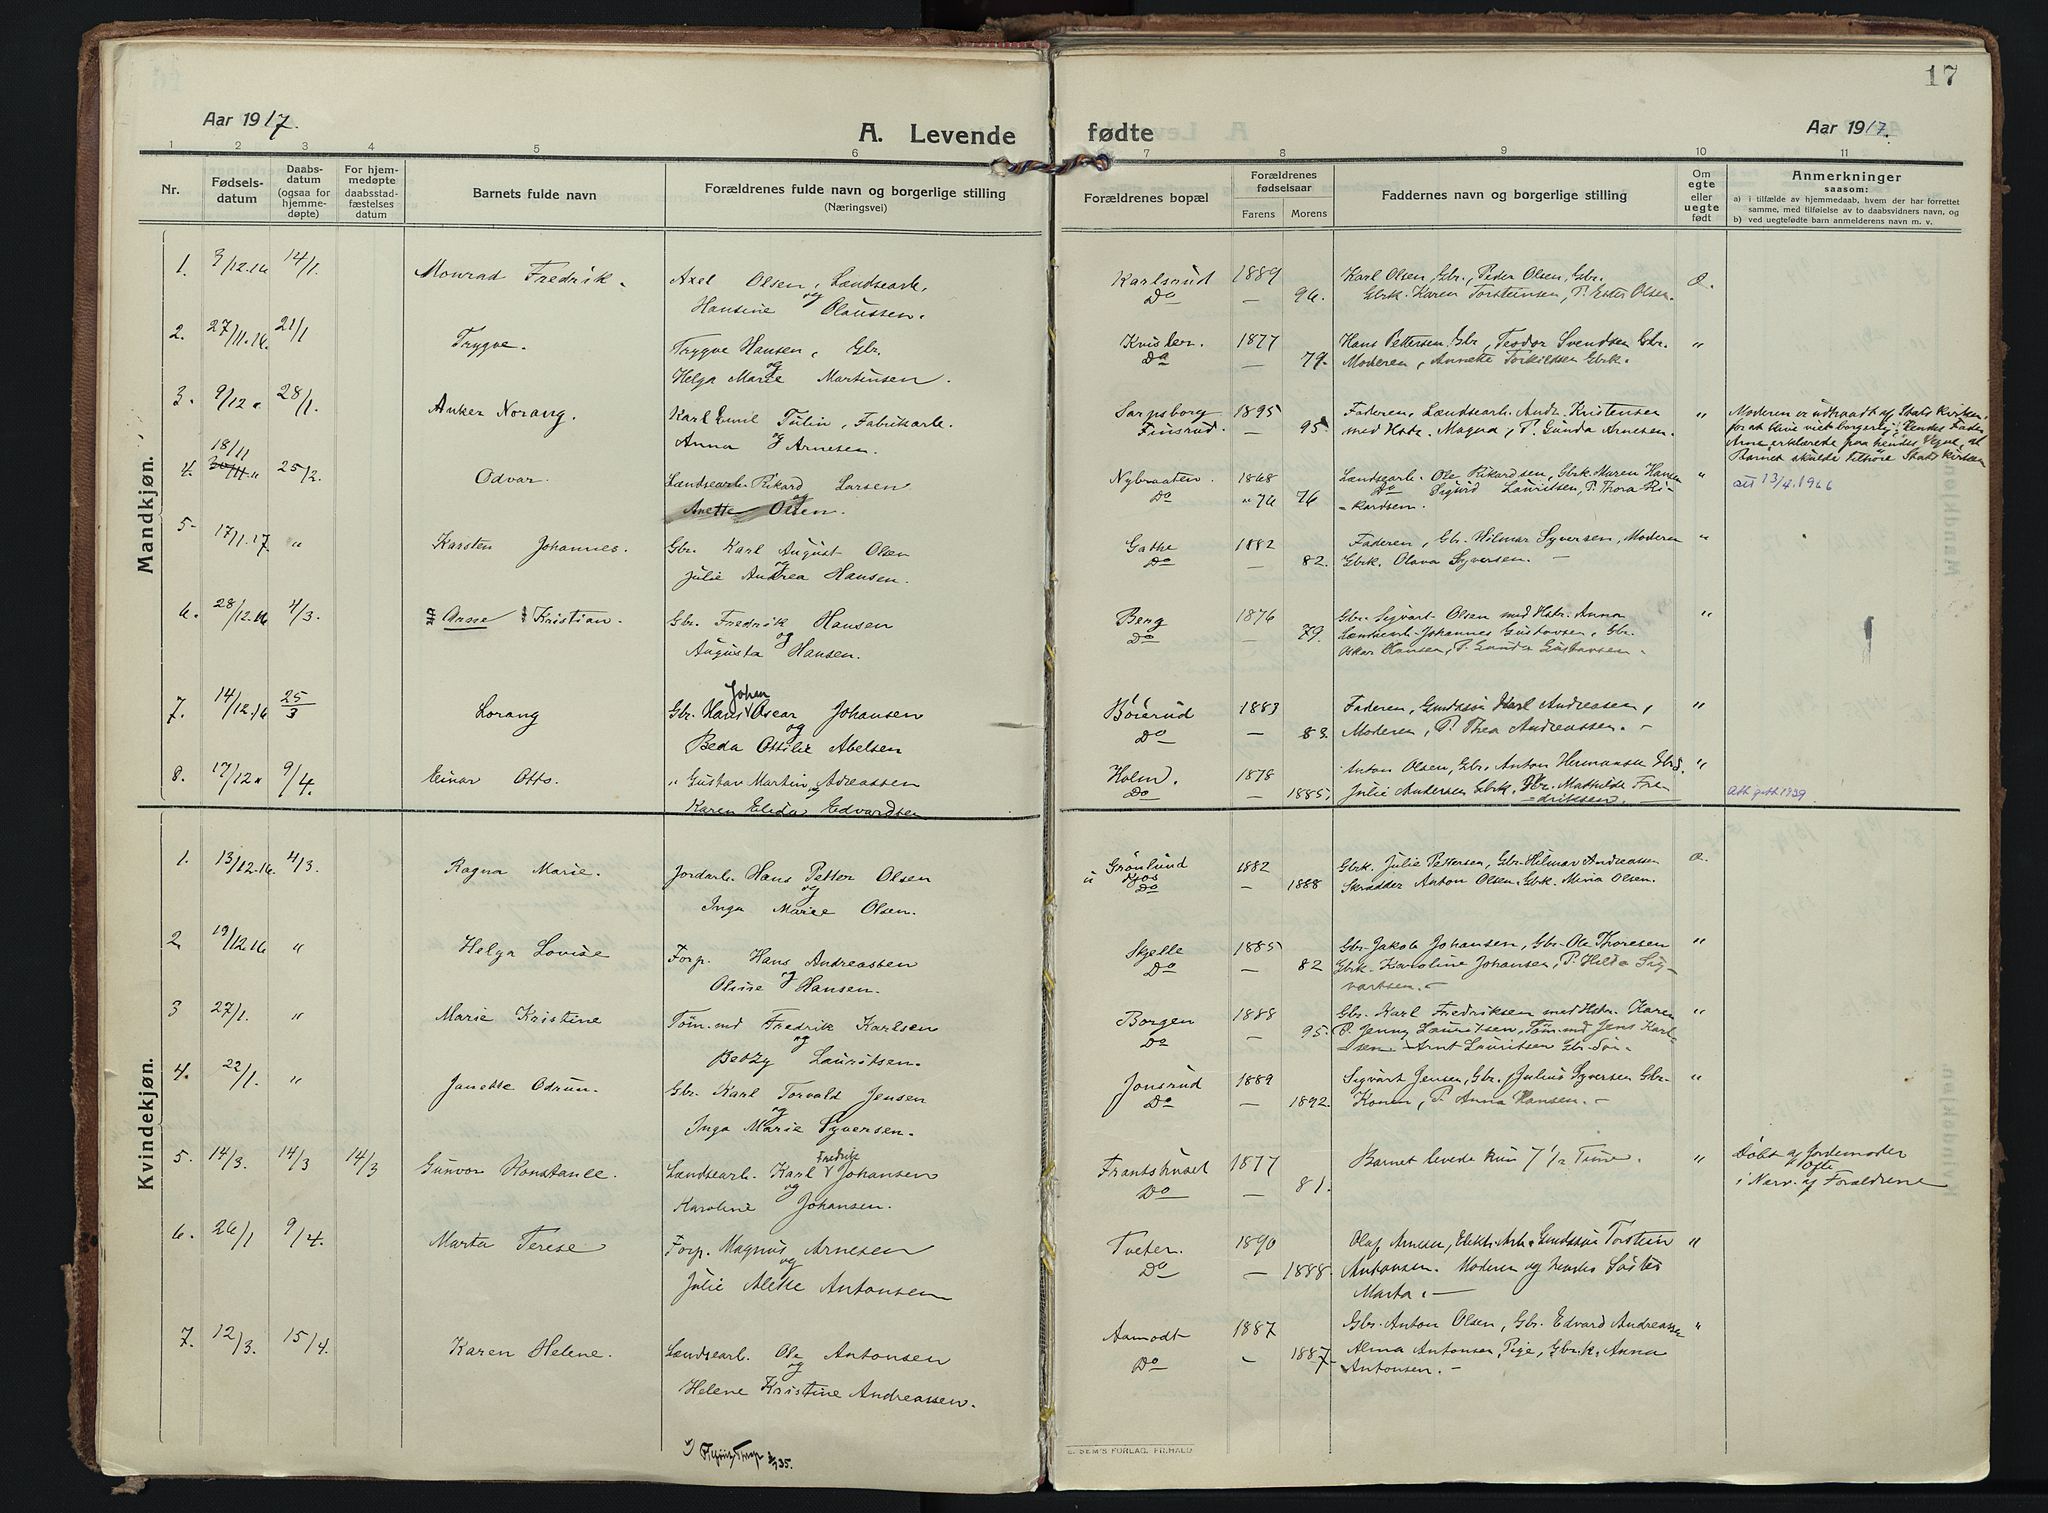 17
Aar 1917.
A. Levende fødte
Aar 1917.
1 2 3 4 5 6 7 8 9 10 11
Nr.
Fødsels-
datum
Daabs-
datum
(ogsaa for
hjemme-
døpte)
For hjem-
medøpte
daabsstad-
fæstelses
datum
Barnets fulde navn
Forældrenes fulde navn og borgerlige stilling
(Næringsvei)
Forældrenes bopæl
Forældrenes
fødselsaar
Farens Morens
Faddernes navn og borgerlige stilling
Om
egte
eller
uegte
født
Anmerkninger
saasom:
a) i tilfælde av hjemmedaab, hvem der har forrettet
samme, med tilføielse av to daabsvidners navn, og
b) ved uegtefødte barn anmelderens navn m. v.
Mandkjøn.
1. 9/12.16 14/1. Monrad Fredrik. Axel Olsen, Landsearb. Karlsrud 1889 Karl Olsen, Gbr., Peder Olsen, Gbr.
og Hansine Olaussen. Do — 96. Gbrk. Karen Torsteinsen, P. Ester Olsen.
2. 27/11.16. 21/1 Trygve. Trygve Hansen, Gbr. 1877 Hans Pettersen Gbr, Teodor Svendsen Gbr. "
og
Helga Marie Martinsen. Do — 79. Moderen, Annette Torkildsen Gbrk.
3. 9/12 " 28/1. Anker Norang. Karl Emil Tulin, Fabrikarb. Sarpsborg 1895 Faderen, Landsearb. Andr. Kristensen " Moderen er udtraadt af Stats Kirken
Anna J Arnesen. Finsrud. — 95. med Hstr. Magna, P. Gunda Arnesen. for at blive viet borgerlig; hendes Fader
Arne erklærede paa hendes Vegne, at
Barnet skulde tilhøre Statskirken
18/11
4. 25/2. Odvar. Landsearb. Rikard Larsen Nybraaten 1868 Landsearb. Ole Rikardsen, Gbrk. Maren Hansen "
og
Anette Olsen. Do " 76 76 Do Sigurd Lauritsen, P. Thora Ri- att 13/4.1966
kardsen.
5 17/1.17 " Karsten Johannes. Gbr. Karl August Olsen Gathe 1882 Faderen, Gbr. Hilmar Syversen, Moderen "
og
Julie Andrea Hansen. Do — 82. Gbrk. Olava Syversen. —
6. 28/12.16 4/3. Arne Kristian. Gbr. Fredrik Hansen Berg 1876 Gbr. Sigvart Olsen med Hstr. Anna "
og
Augusta Hansen. Do — 79. Landsearb. Johannes Gustavsen, Gbr.
Oskar Hansen, P. Gunda Gustavsen.
Johan
7. 14/12.16 25/3 Lorang Gbr. Hans Oscar Johansen Böierud 1883 Faderen, Karl Andreassen, "
og
Beda Ottilie Abelsen Do — 83. Moderen, P. Thea Andreassen. —
8. 17/12 " 9/4. Einar Otto. " Gustav Martin Adreassen Holm. 1878 Anton Olsen, Gbr. Anton Hermansen Gbr. "
og
Karen Elida Edvardsen Do — 1885. Julie Andersen Gbrk. Mathilde Fre-
driksen. —
Kvindekjøn.
1. 13/12.16. 4/3. Ragna Marie. Jordarb. Hans Petter Olsen Grönlund 1882 Gbrk. Julie Pettersen, Gbr. Hilmar Andreassen
og
Inga Marie Olsen. Do — 1888 Skrædder Anton Olsen. Gbrk. Mina Olsen.
2. 19/12.16 " Helga Lovise Forp. Hans Andreassen Skjelle 1885 Gbr. Jakob Johansen, Gbr. Ole Thoresen "
og
Oline Hansen. Do — 82 Gbrk. Karoline Johansen, P. Hilda Sig-
vartsen. —
3 27/1. " Marie Kristine Töm.md Fredrik Karlsen Borgen 1888 Gbr. Karl Fredriksen med Hstr. Karen "
og
Betzy Lauritsen. Do — 95. P. Jenny Lauritsen, Töm.md Jens Karl-
sen Arnt Lauritsen Gbr. Sön.
4. 22/1. " Janette Odrun. Gbr. Karl Torvald Jensen Jonsrud 1889 Sigvart Jensen, Gbr. Julius Syversen Gbr. "
og
Inga Marie Syversen. Do — 1892. Konen, P. Anna Hansen. —
Fredrik
5. 14/3. 14/3 14/3 Gunvor Konstance. Landsearb. Karl Johansen 1877 Barnet levede kun 7 1/2 Time. " Döbt af Jordemoder
og
Karoline Johansen. Do — 81. i Nærv. af Forældrene
6. 26/1 9/4. Marta Terese Forp. Magnus Arnesen Tveter. 1890 Olaf Arnesen, Elektr. Arb. Torstein "
og
Julie Alette Antonsen Do — 1888. Antonsen. Moderen og hendes Söster
Marta. —
7. 12/3. 15/4. Karen Helene. Landsearb. Ole Antonsen Aamodt 1887 Gbr. Anton Olsen, Gbr. Edvard Andreassen "
og
Helene Kristine Andreassen. Do — 1887 Alma Antonsen, Pige, Gbrk. Anna
Antonsen. —
E. SEM'S FORLAG, FR.HALD